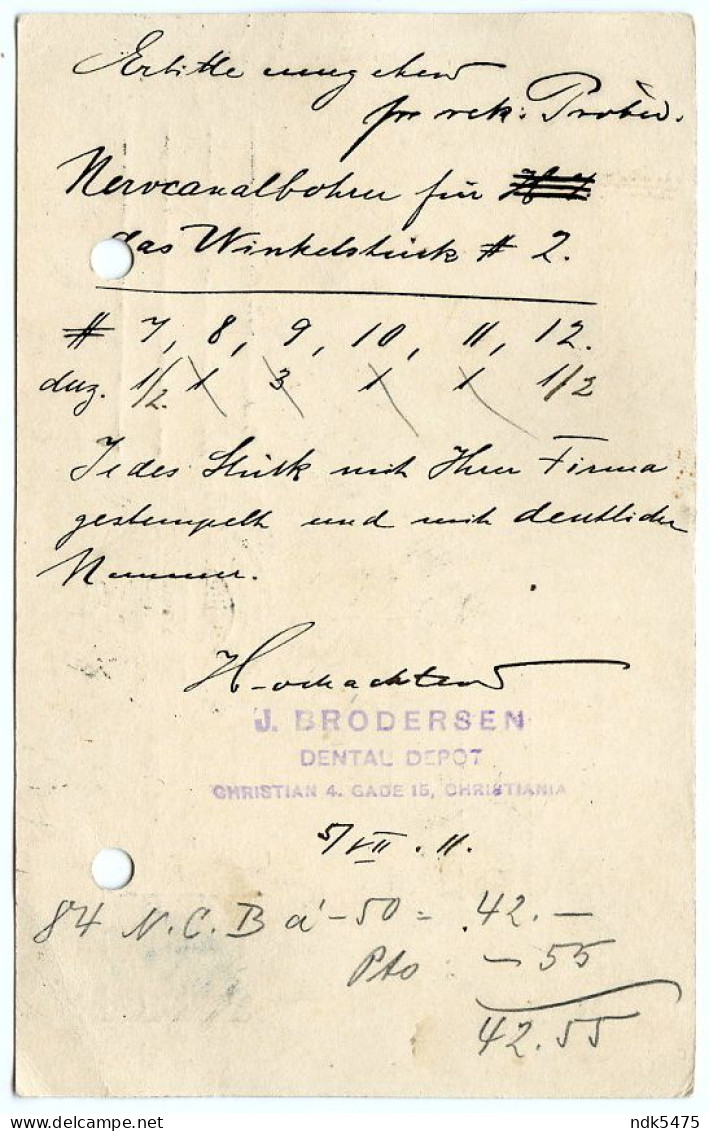 Erbitte umgehend
per rek: Probe.
Nervcanalbohrer für
das Winkelstück # 2.
# 7, 8, 9, 10, 11, 12.
duz. 1/2. 1 3 1 1 1/2
Jedes Stück mit Ihrer Firma
gestempelt und mit deutlicher
Nummer.
Hochachtend
J. BRODERSEN
DENTAL DEPOT
CHRISTIAN 4. GADE 15, CHRISTIANIA
5/VII. 11.
84 N.C.B à -50 = 42.—
Pto : -55
42.55
ndk5475